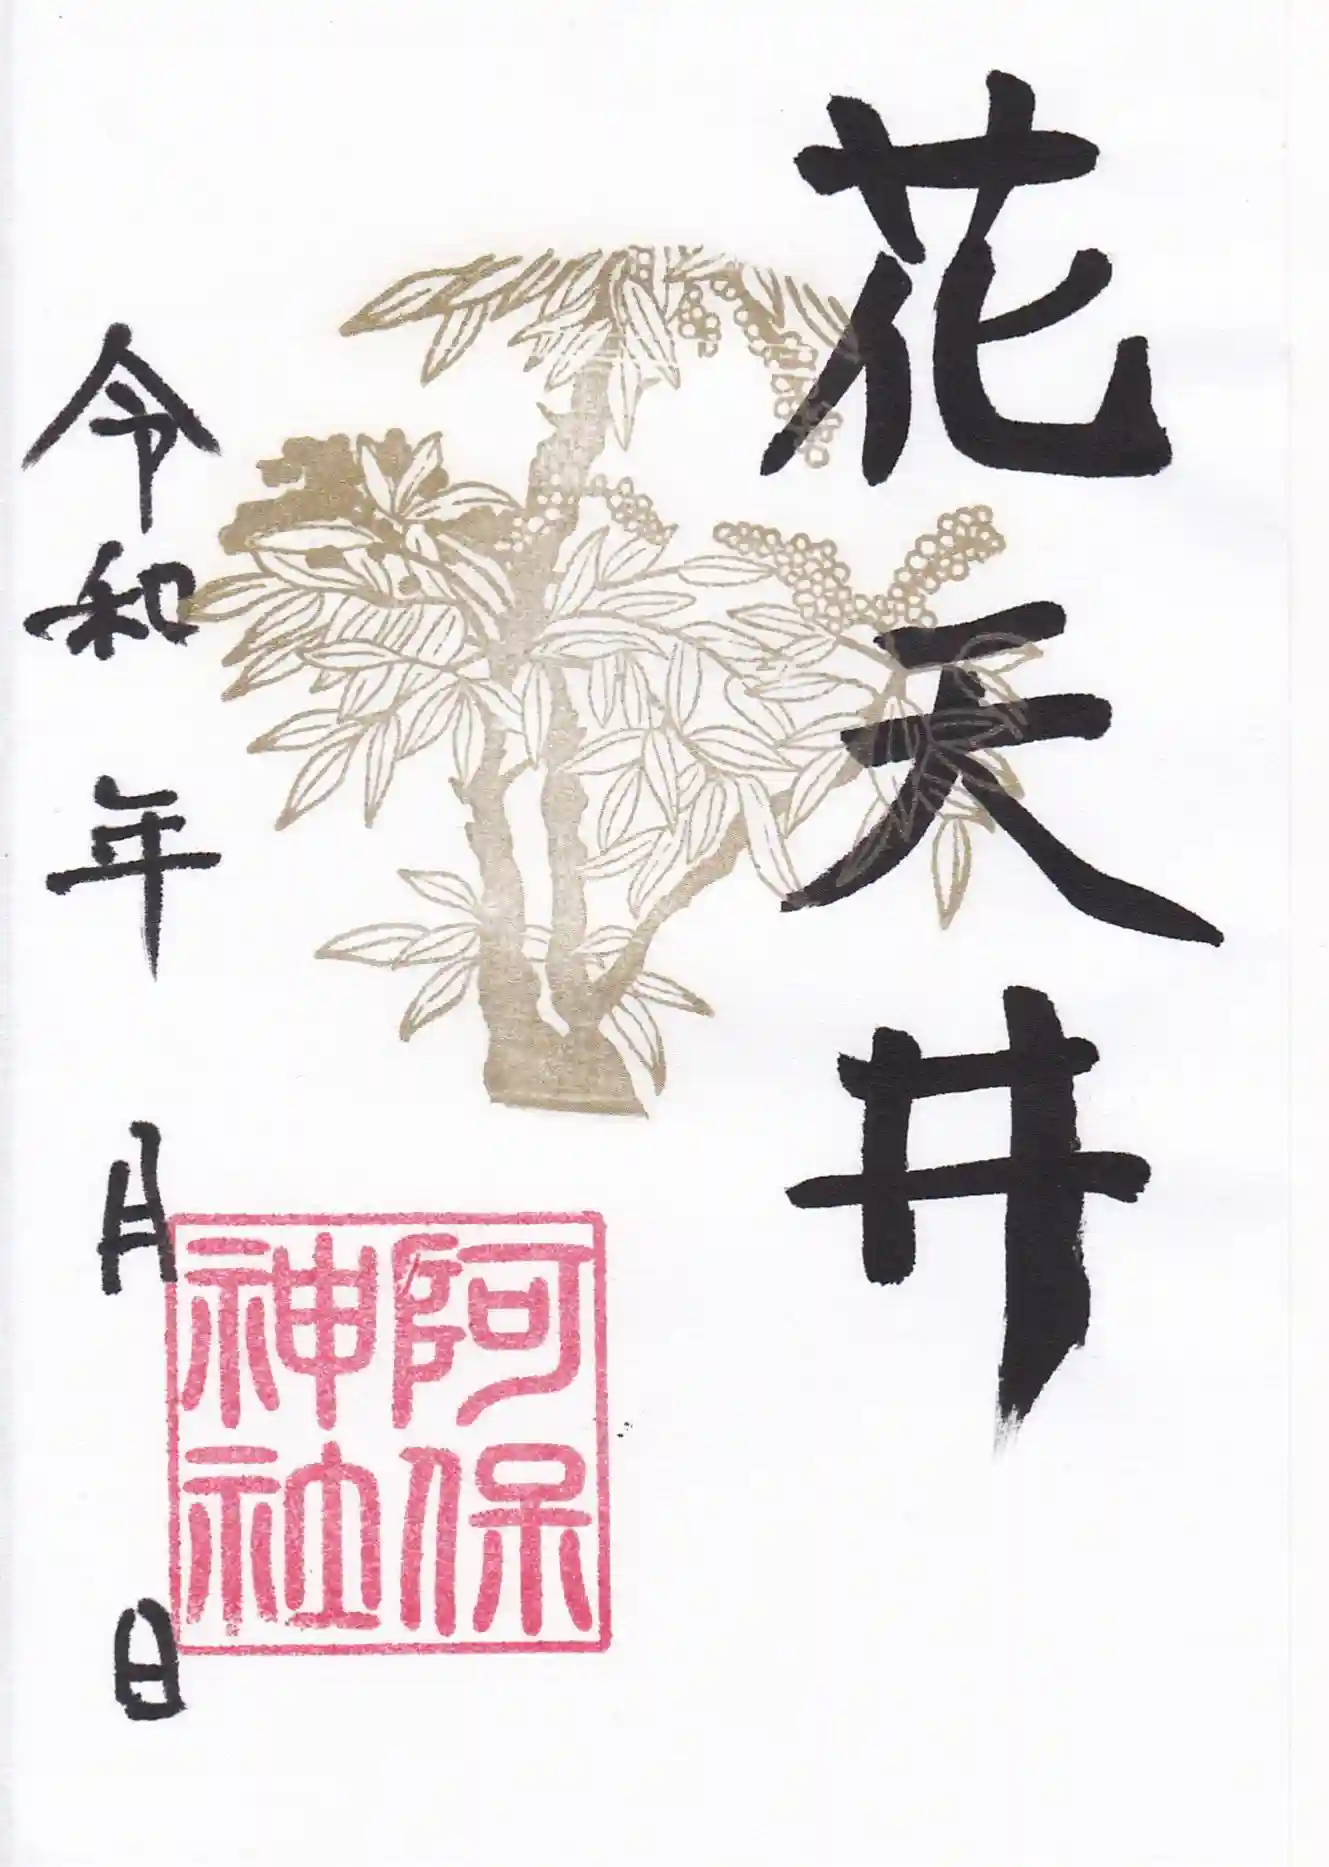 花天井
阿保
神社
令和 年 月 日